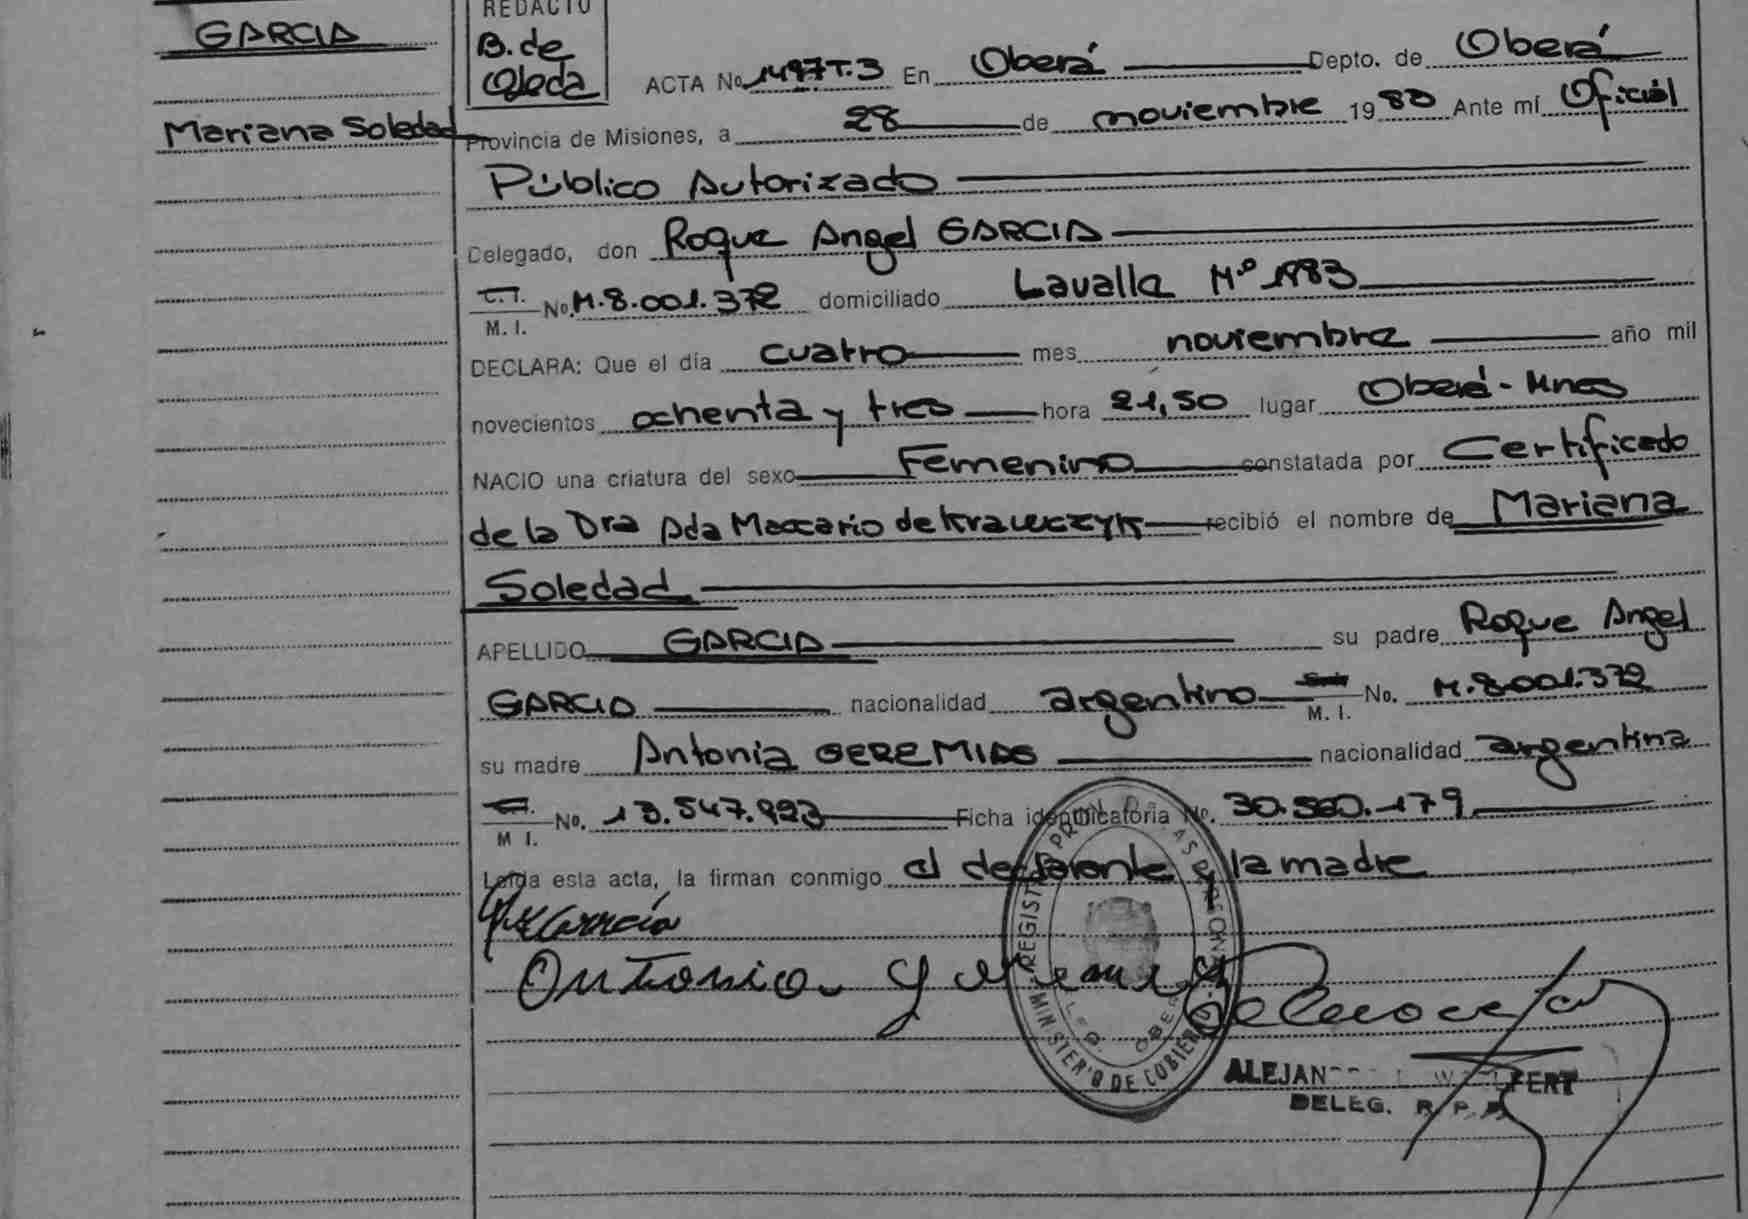 GARCIA
Mariana Soledad
REDACTO
B. de
Ojeda
ACTA No 1497 T.3 En Oberá Depto. de Oberá
Provincia de Misiones, a 28 de noviembre 1983 Ante mí Oficial
Público Autorizado
Delegado, don Roque Angel GARCIA
C.I. M. I. No. M.8.001.372 domiciliado Lavalle Nº 1983
DECLARA: Que el día cuatro mes noviembre año mil
novecientos ochenta y tres hora 21,50 lugar Oberá - Mnes
NACIO una criatura del sexo Femenino constatada por Certificado
de la Dra Ada Maccario de Krawczyk recibió el nombre de Mariana
Soledad
APELLIDO GARCIA su padre Roque Angel
GARCIA nacionalidad argentino M. I. No. M.8.001.372
su madre Antonia GEREMIAS nacionalidad argentina
M I. No. 13.547.993 Ficha identificatoria No. 30.560.179
Leída esta acta, la firman conmigo el declarante y la madre
Garcia
Antonia Geremias
REGISTRO PROV. DE LAS PERSONAS
MINISTERIO DE GOBIERNO
OBERA
ALEJAN FERT
DELEG. R. P. P.